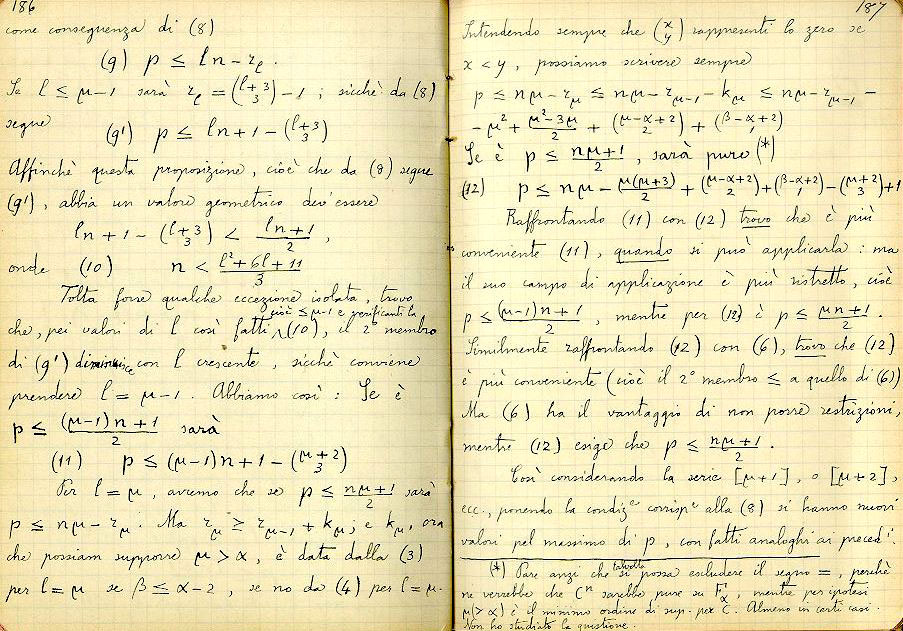 186
come conseguenza di (8)
(9) p ≤ ln − r_l .
Se l ≤ μ−1 sarà r_l = (l+3 3) − 1 ; sicchè da (8)
segue (9') p ≤ ln + 1 − (l+3 3)
Affinchè questa proposizione, cioè che da (8) segue
(9'), abbia un valore geometrico dev'essere
ln + 1 − (l+3 3) < (ln+1)/2 ,
onde (10) n < (l²+6l+11)/3
Tolta forse qualche eccezione isolata, trovo
cioè ≤ μ−1 e verificanti la
che, pei valori di l così fatti ∧ (10), il 2° membro
di (9') diminuisce con l crescente, sicchè conviene
prendere l = μ−1. Abbiamo così: Se è
p ≤ ((μ−1)n+1)/2 sarà
(11) p ≤ (μ−1)n + 1 − (μ+2 3)
Per l = μ, avremo che se p ≤ (nμ+1)/2 sarà
p ≤ nμ − r_μ. Ma r_μ ≥ r_μ−1 + k_μ; e k_μ, ora
che possiam supporre μ > α, è data dalla (3)
per l = μ se β ≤ α−2, se no da (4) per l = μ.
187
Intendendo sempre che (x y) rappresenti lo zero se
x < y, possiamo scrivere sempre
p ≤ nμ − r_μ ≤ nμ − r_μ−1 − k_μ ≤ nμ − r_μ−1 −
− μ² + (μ²−3μ)/2 + (μ−α+2 2) + (β−α+2 1)
Se è p ≤ (nμ+1)/2, sarà pure (*)
(12) p ≤ nμ − μ(μ+3)/2 + (μ−α+2 2) + (β−α+2 1) − (μ+2 3) + 1
Raffrontando (11) con (12) trovo che è più
conveniente (11), quando si può applicarla: ma
il suo campo di applicazione è più ristretto, cioè
p ≤ ((μ−1)n+1)/2, mentre per (12) è p ≤ (μn+1)/2.
Similmente raffrontando (12) con (6), trovo che (12)
è più conveniente (cioè il 2° membro ≤ a quello di (6))
Ma (6) ha il vantaggio di non porre restrizioni,
mentre (12) esige che p ≤ (nμ+1)/2.
Così considerando la serie [μ+1], o [μ+2],
ecc., ponendo la condizᵉ corrispᵉ alla (8) si hanno nuovi
valori pel massimo di p, con fatti analoghi ai precedᵗⁱ.
talvolta
(*) Pare anzi che si possa escludere il segno =, perchè
ne verrebbe che Cⁿ sarebbe pure su F_α, mentre per ipotesi
μ(> α) è il minimo ordine di sup. per C. Almeno in certi casi.
Non ho studiato la questione.